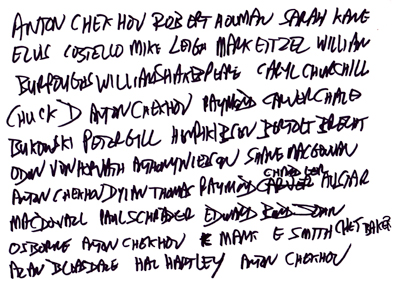 ANTON CHEKHOV ROBERT HOLMAN SARAH KANE
ELVIS COSTELLO MIKE LEIGH MARK EITZEL WILLIAM
BURROUGHS WILLIAM SHAKESPEARE CARYL CHURCHILL
CHUCK D ANTON CHEKHOV RAYMOND CARVER CHARLES
BUKOWSKI PETER GILL HENRIK IBSEN BERTOLT BRECHT
ODON VON HORVATH ANTHONY NEILSON SHANE MACGOWAN
ANTON CHEKHOV DYLAN THOMAS RAYMOND CHANDLER
MACDONALL PAUL SCHRADER EDWARD BOND JOHN
OSBORNE ANTON CHEKHOV MARK E SMITH CHET BAKER
ALAN BLEASDALE HAL HARTLEY ANTON CHEKHOV